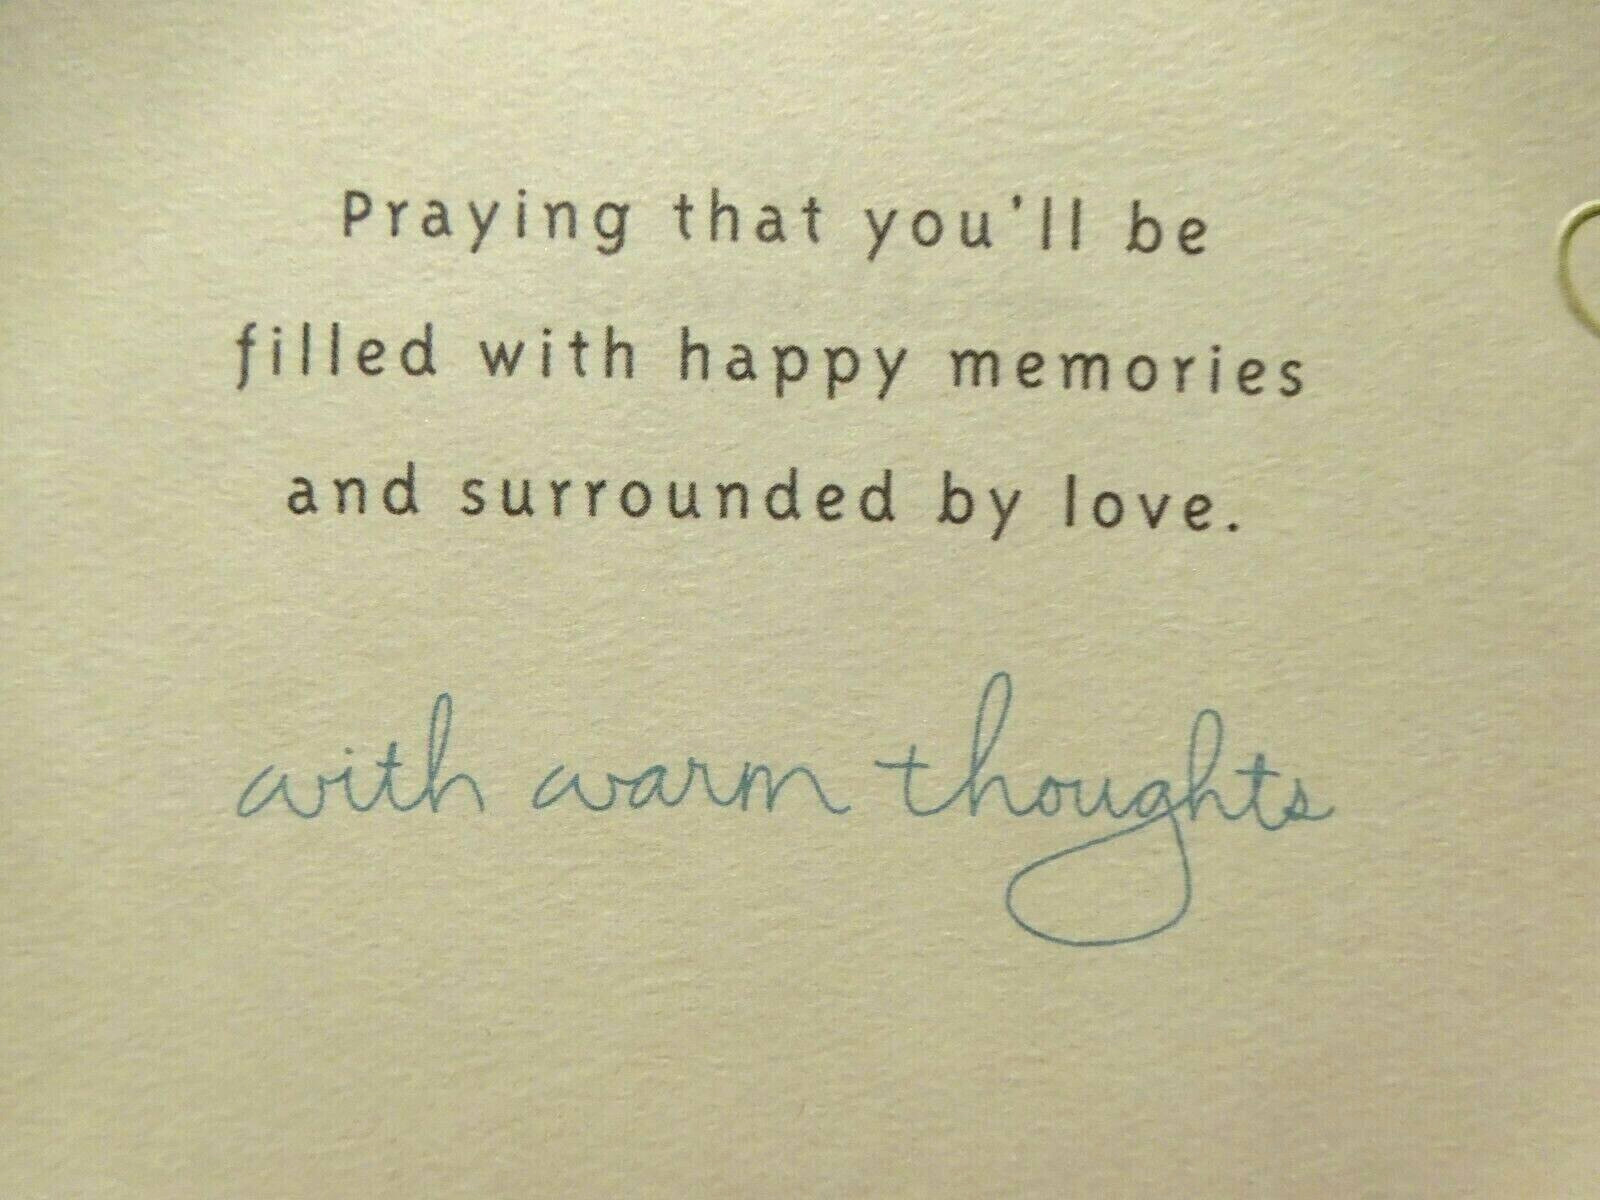 Praying that you'll be
filled with happy memories
and surrounded by love.
with warm thoughts